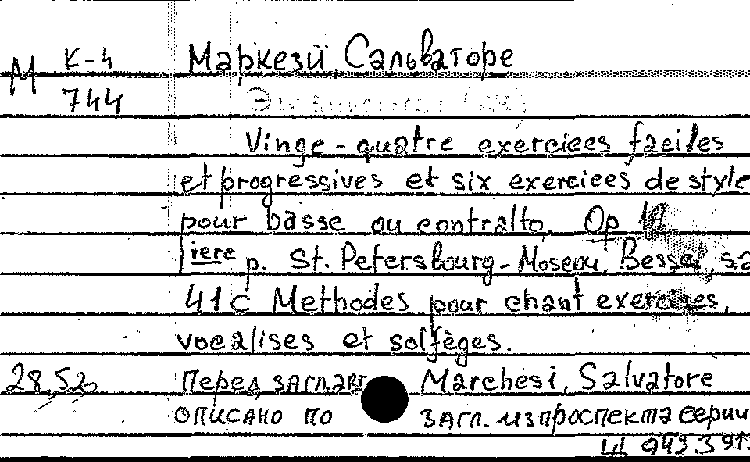 М К-4 Маркези, Сальваторе
744
Vinge-quatre exerciees faciles
et progressives et six exerciees de style
pour basse ou contralto. Op 12
Iiere p. St. Petersbourg-Moscou, Bessel, s.a
41 c Methodes pour chant exercises,
vocalises et solfèges.
28,52 Перед заглав Marchesi, Salvatore
описано по загл. из проспекта серии